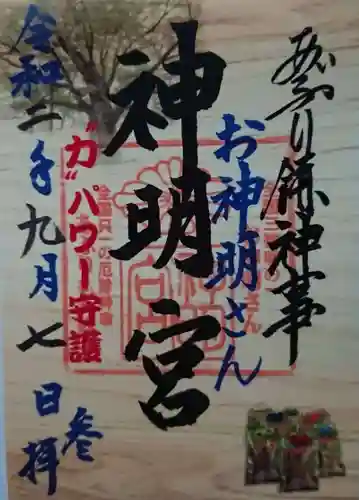 あぶり餅神事
お神明さん
神明宮
“力”パワー守護
令和二年九月七日参拝